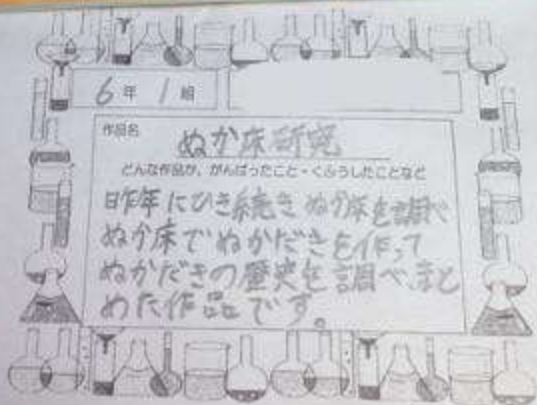 6年 1組
作品名 ぬか床研究
どんな作品か、がんばったこと・くふうしたことなど
昨年にひき続き ぬか床を調べ
ぬか床でぬかだきを作って
ぬかだきの歴史を調べ、まと
めた作品です。